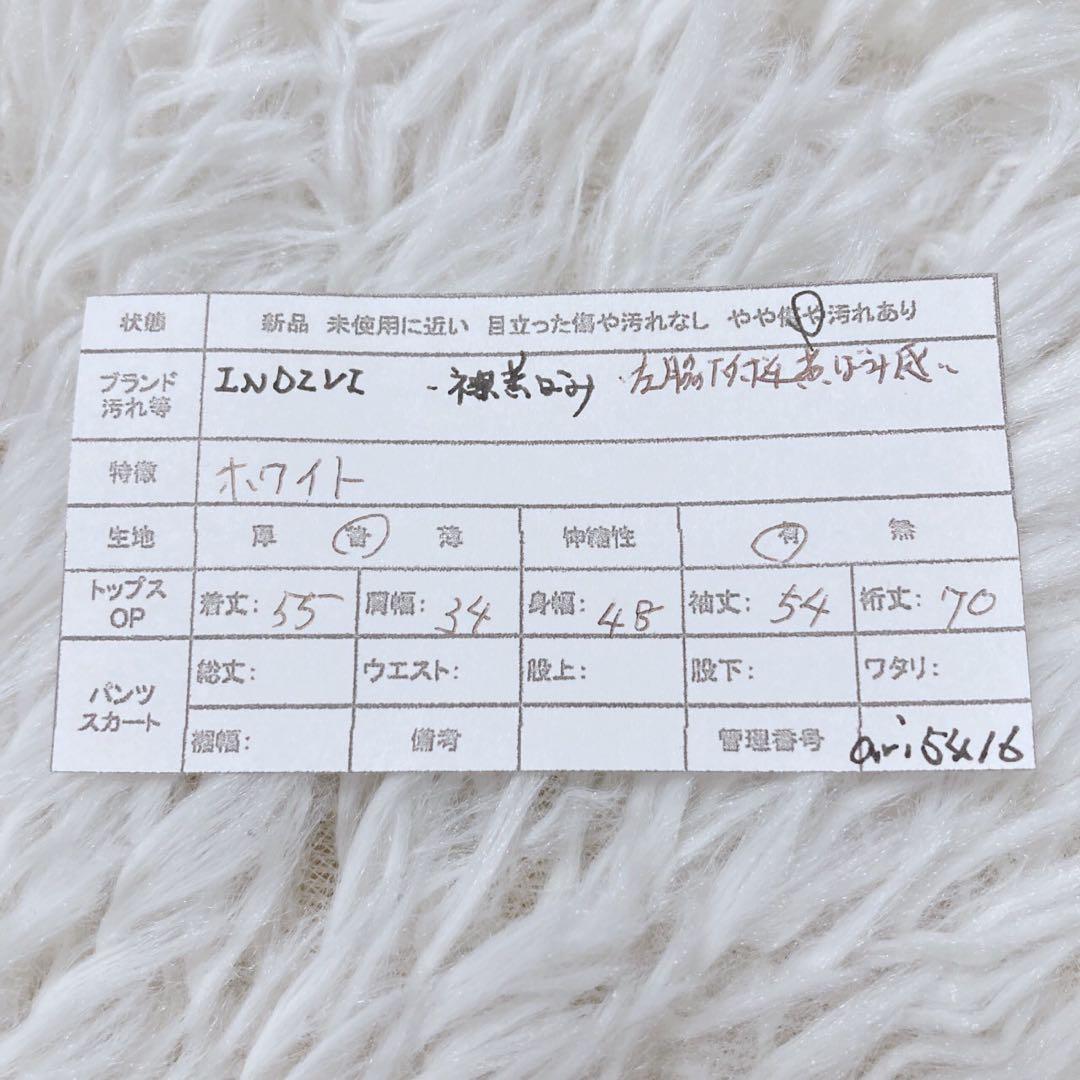 状態 新品 未使用に近い 目立った傷や汚れなし やや傷や汚れあり
ブランド 汚れ等 INDIVI ・襟黄ばみ ・左脇下
特徴 ホワイト
生地 厚 普 薄 伸縮性 有 無
トップス OP 着丈: 55 肩幅: 34 身幅: 48 袖丈: 54 裄丈: 70
パンツ スカート 総丈: ウエスト: 股上: 股下: ワタリ:
裾幅: 備考 管理番号 ari5416